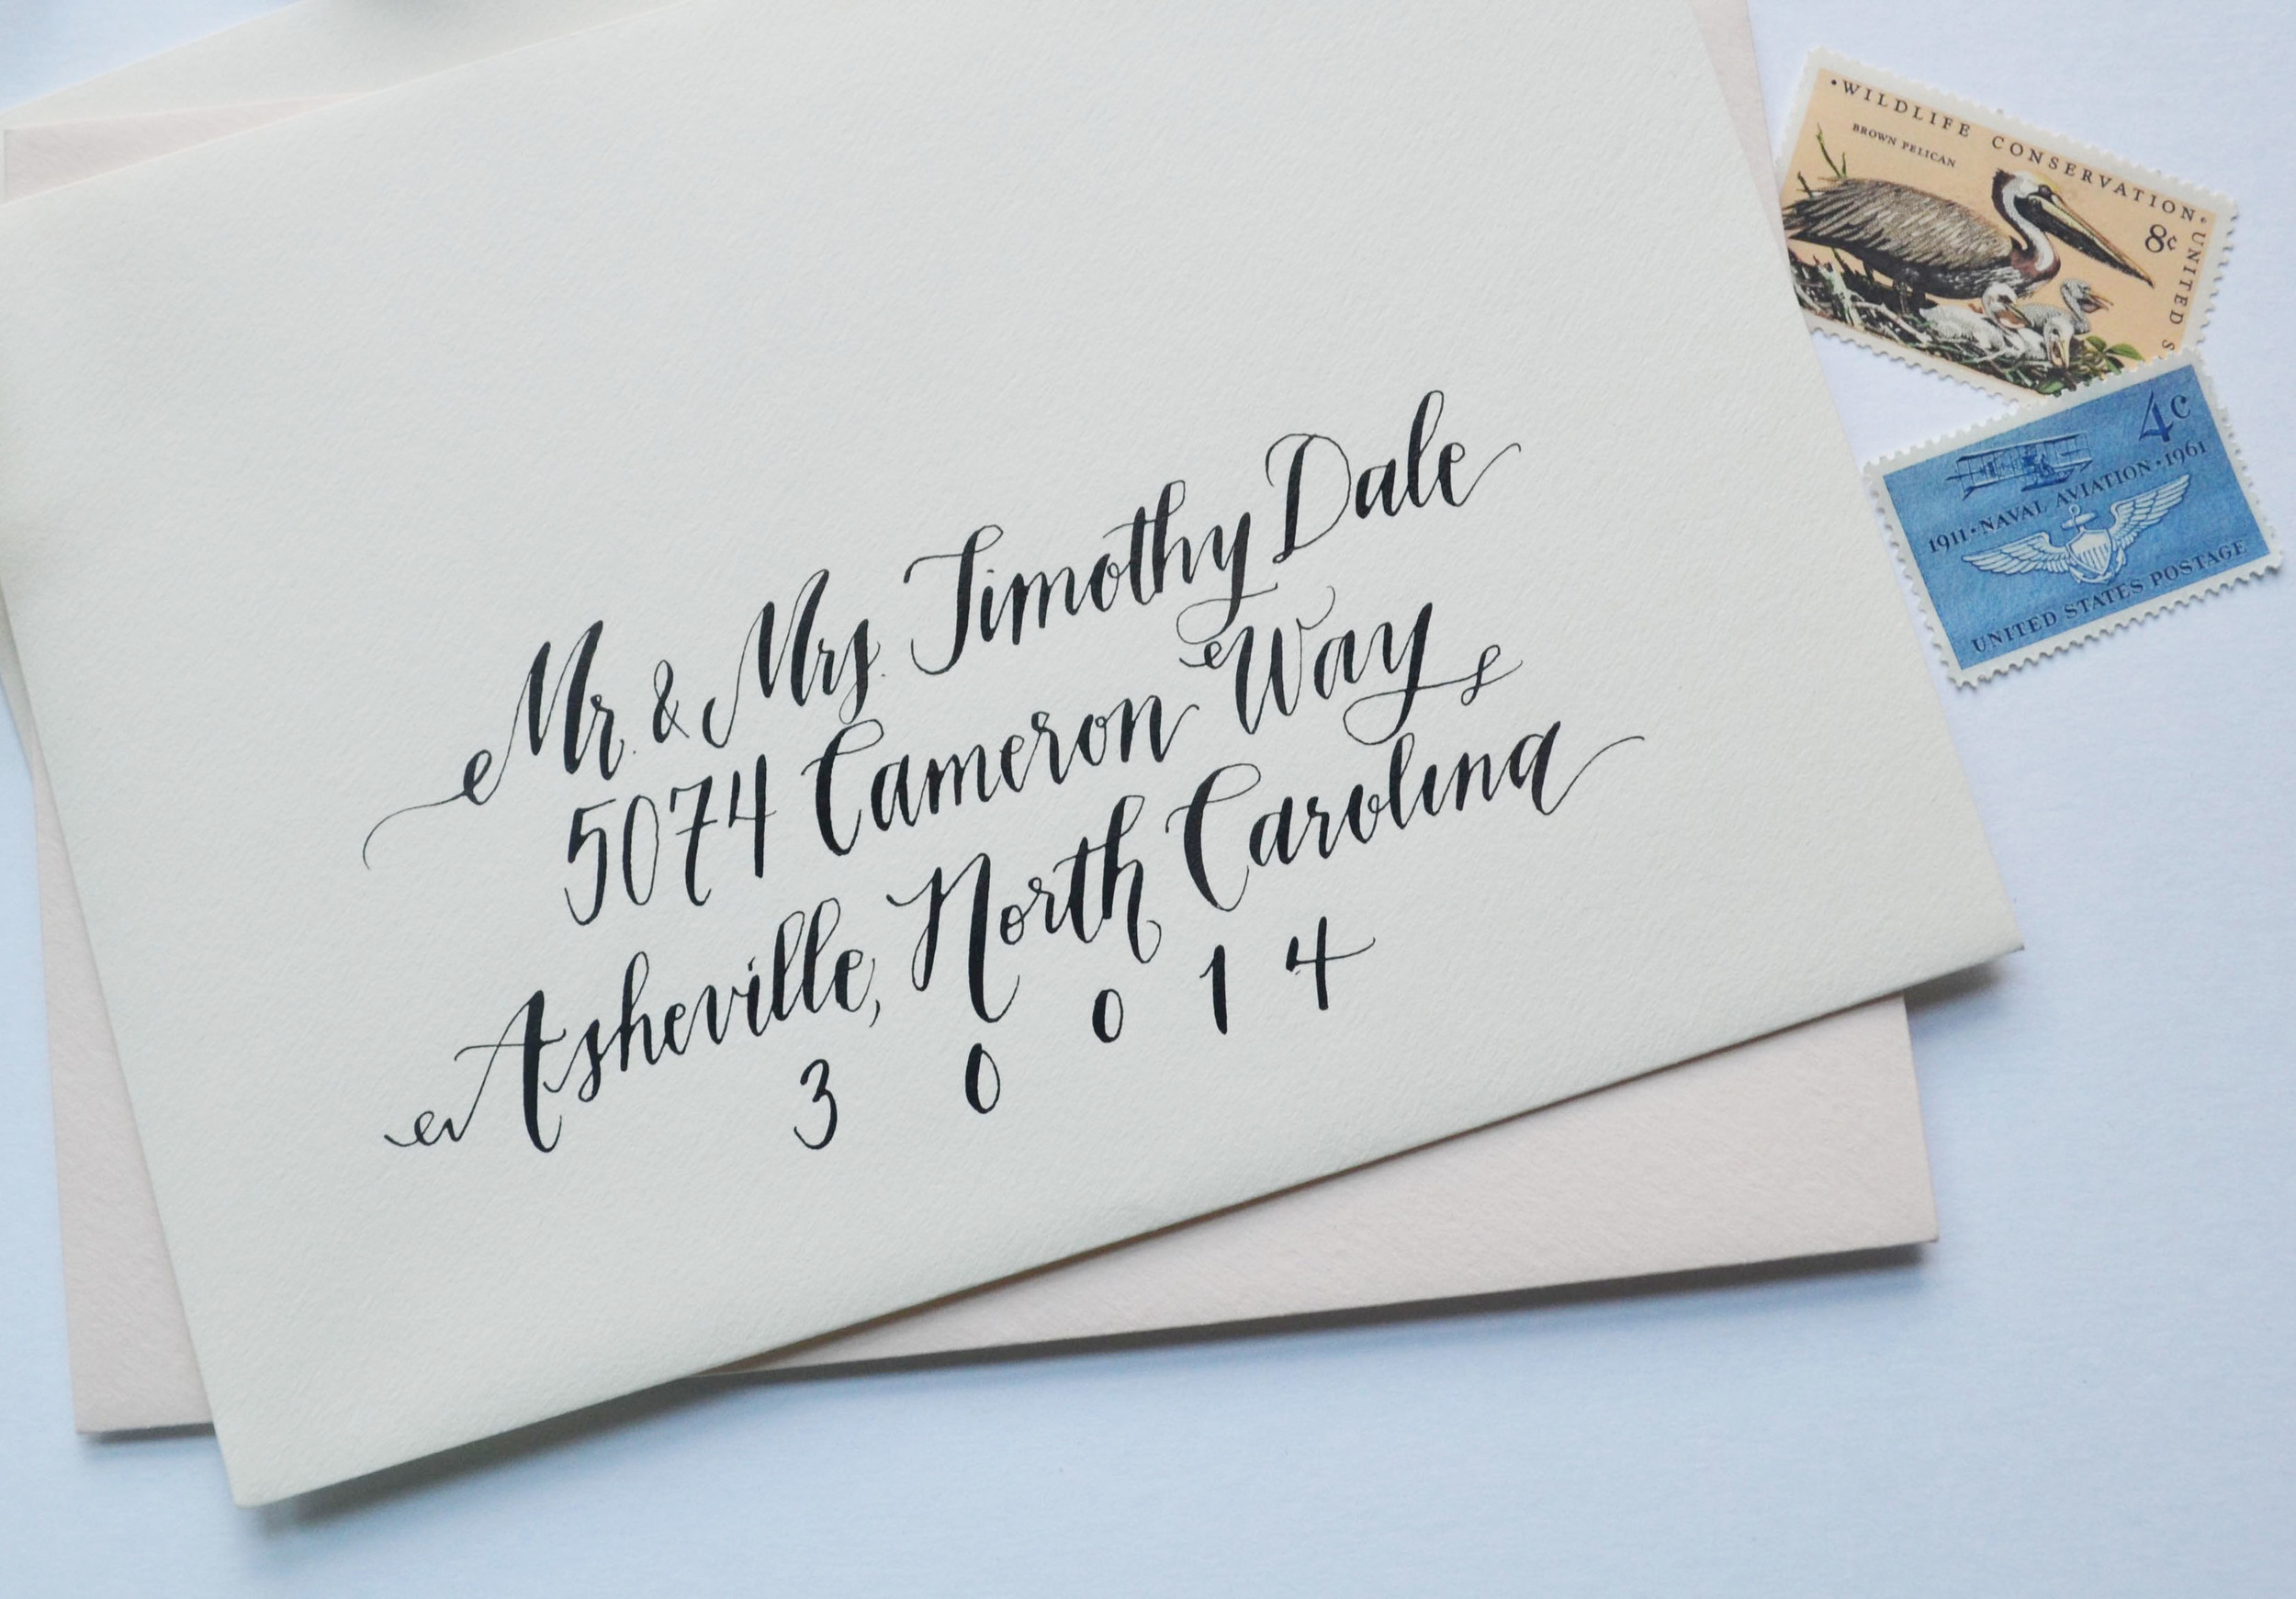 Mr. & Mrs. Timothy Dale
5074 Cameron Way
Asheville, North Carolina
3 0 0 1 4
• WILDLIFE CONSERVATION • UNITED S
BROWN PELICAN
8c
4c
1911 • NAVAL AVIATION • 1961
UNITED STATES POSTAGE